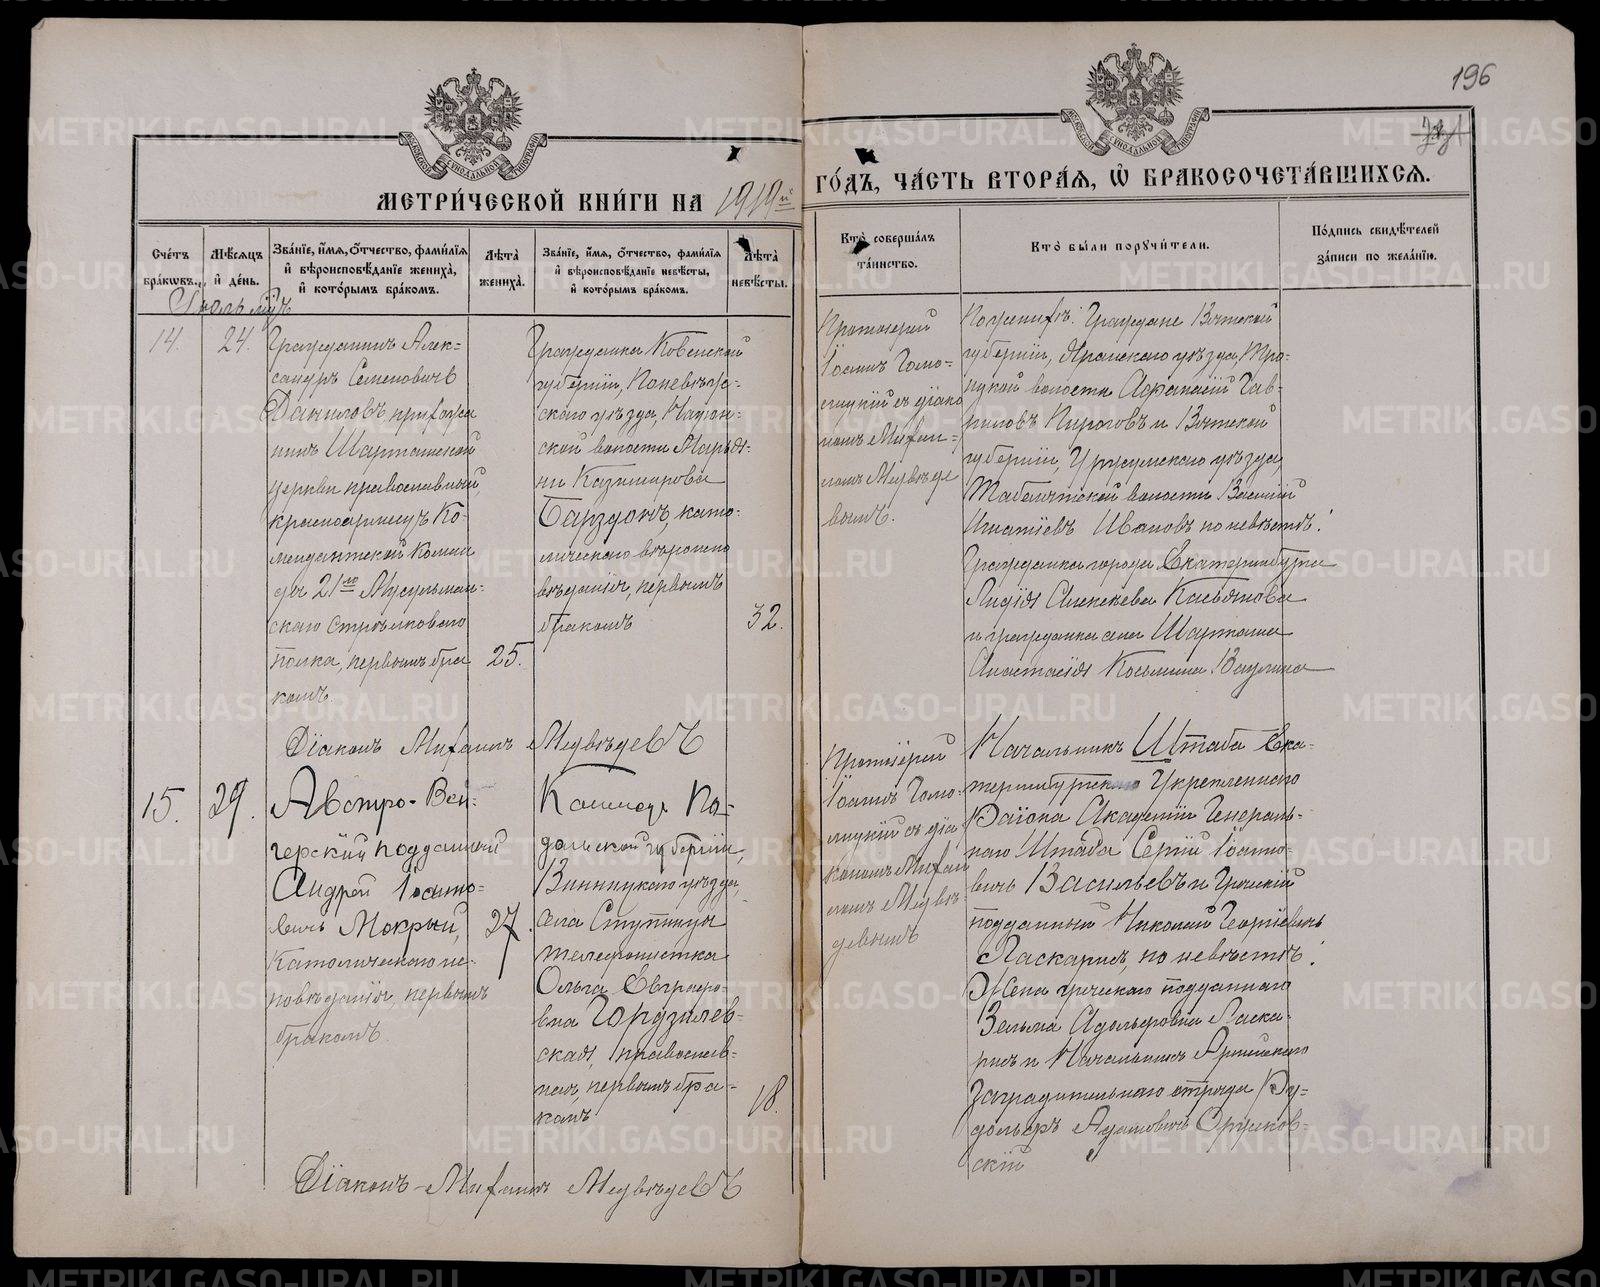 196
МЕТРИ́ЧЕСКОЙ КНИ́ГИ НА 1919й
ГО́ДЪ, ЧА́СТЬ ВТОРА́Я, Ѡ БРАКОСОЧЕТА́ВШИХСЯ.
Сче́тъ бра́кѡвъ.
Мѣ́сяцъ и́ де́нь.
Зва́нїе, и́мѧ, ѻ́тчество, фами́лїѧ и́ вѣроисповѣ́данїе жениха̀, и́ кото́рымъ бра́комъ.
Лѣ́та жениха̀.
Зва́нїе, и́мѧ, ѻ́тчество, фами́лїѧ и́ вѣроисповѣ́данїе невѣ́сты, и́ кото́рымъ бра́комъ.
Лѣ́та невѣ́сты.
Кто̀ соверша́лъ та́инство.
Кто̀ бы́ли пору́чители.
По́дпись свидѣ́телей за́писи по жела́нїю.
Іюль мѣц
14.
24.
Гражданинъ Алек-
сандръ Семеновичъ
Даниловъ прихожа
нинъ Шарташской
церкви православный,
красноармеецъ Ко-
мендантской Коман
ды 21го Мусульман-
скаго Стрѣлковаго
полка, первымъ бра
комъ.
25.
Гражданка Ковенской
губернїи, Поневѣж-
скаго уѣзда,
ской волости Марья-
на Казимирова
като-
лическаго вѣроиспо
вѣданїя, первымъ
бракомъ
32.
Протоїерей
Іоаннъ
съ дїако
номъ Михаи-
ломъ Медвѣде
вымъ.
По женихѣ: Граждане Вятской
губернїи, Яранскаго уѣзда,
волости Афанасїй Гав-
риловъ Пироговъ и Вятской
губернїи, Уржумскаго уѣзда,
волости Василїй
Игнатїевъ Ивановъ по невѣстѣ:
Гражданка города Екатеринбурга
Лидїя Алексѣева Касьянова
и гражданка села Шарташа
Анастасїя Косьмина Ваулина
Дїаконъ Михаилъ Медвѣдевъ
15.
29.
Австро-Вен-
герскїй подданный
Андрей Іоанно-
вичъ Мокрый,
Католическаго ис-
повѣданїя, первымъ
бракомъ.
27.
По-
дольской губернїи,
Винницкаго уѣзда,
села Ступинцы
телефонистка
Ольга Евграфо-
вна
ская, православ-
ная, первымъ бра-
комъ
18.
Протоїерей
Іоаннъ
съ дїа-
кономъ Михаи
ломъ Медвѣ-
девымъ
Начальникъ Штаба Ека-
теринбургскаго Укрепленнаго
Района Академїи Генераль-
наго Штаба Сергїй Іоанно-
вичъ Васильевъ и Греческїй
подданный Николай Георгїевичъ
Ласкарисъ, по невѣстѣ:
Жена греческаго подданнаго
Зельма Адольфовна Ласка-
рисъ и Начальникъ Армейскаго
Заградительнаго отряда Ру-
дольфъ Адамовичъ
скїй
Дїаконъ-Михаилъ Медвѣдевъ